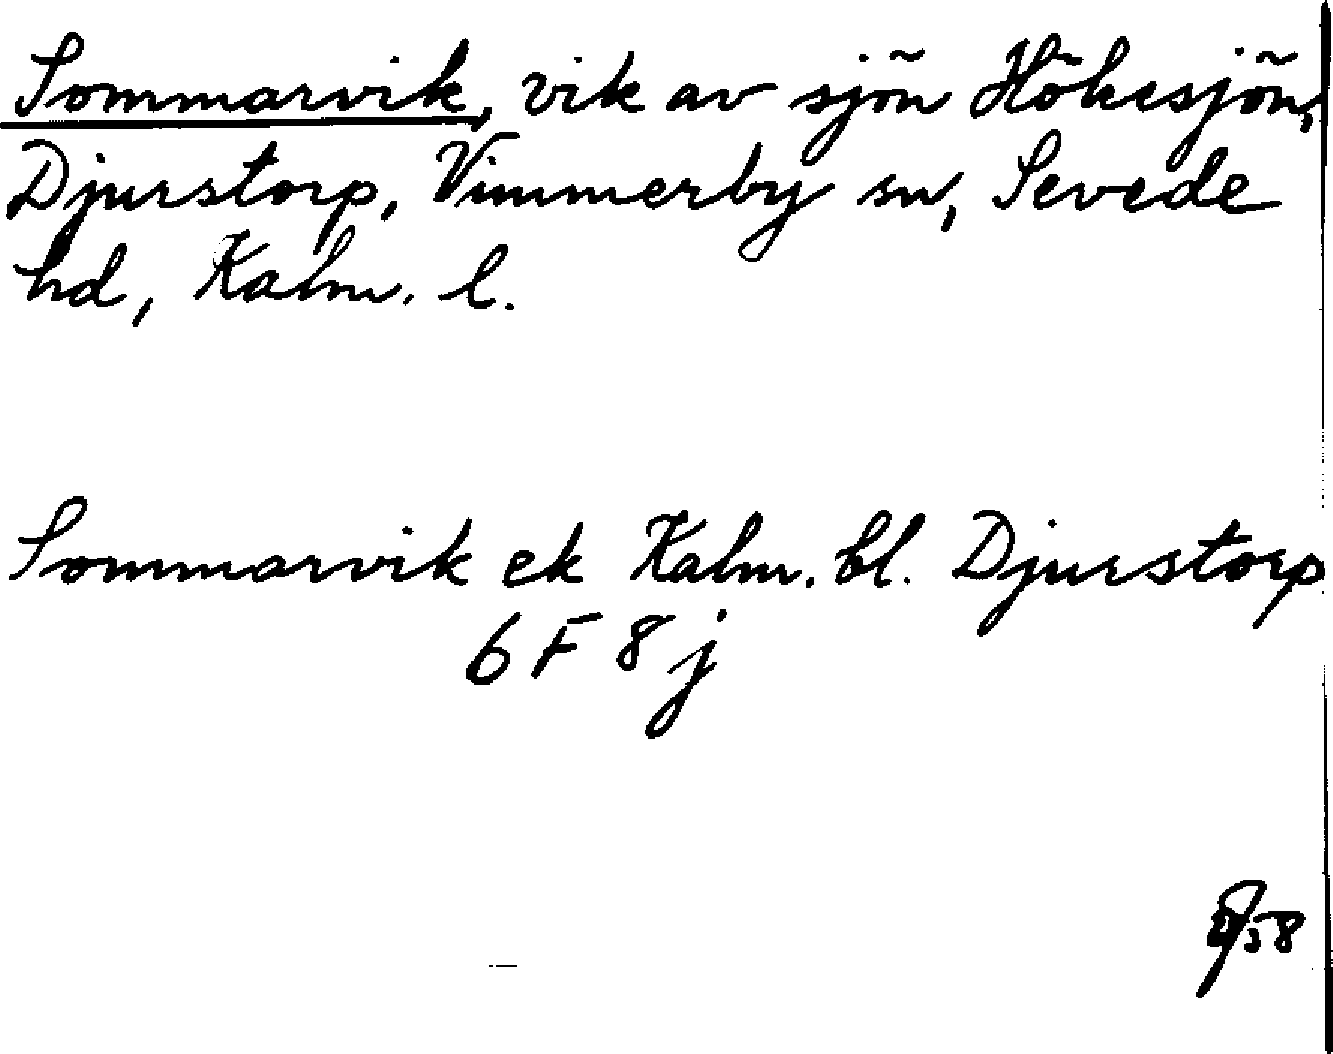 Sommarvik, vik av sjön Hökesjön,
Djurstorp, Vimmerby sn, Sevede
hd, Kalm. l.
Sommarvik ek Kalm. bl. Djurstorp
6 F 8 j
58